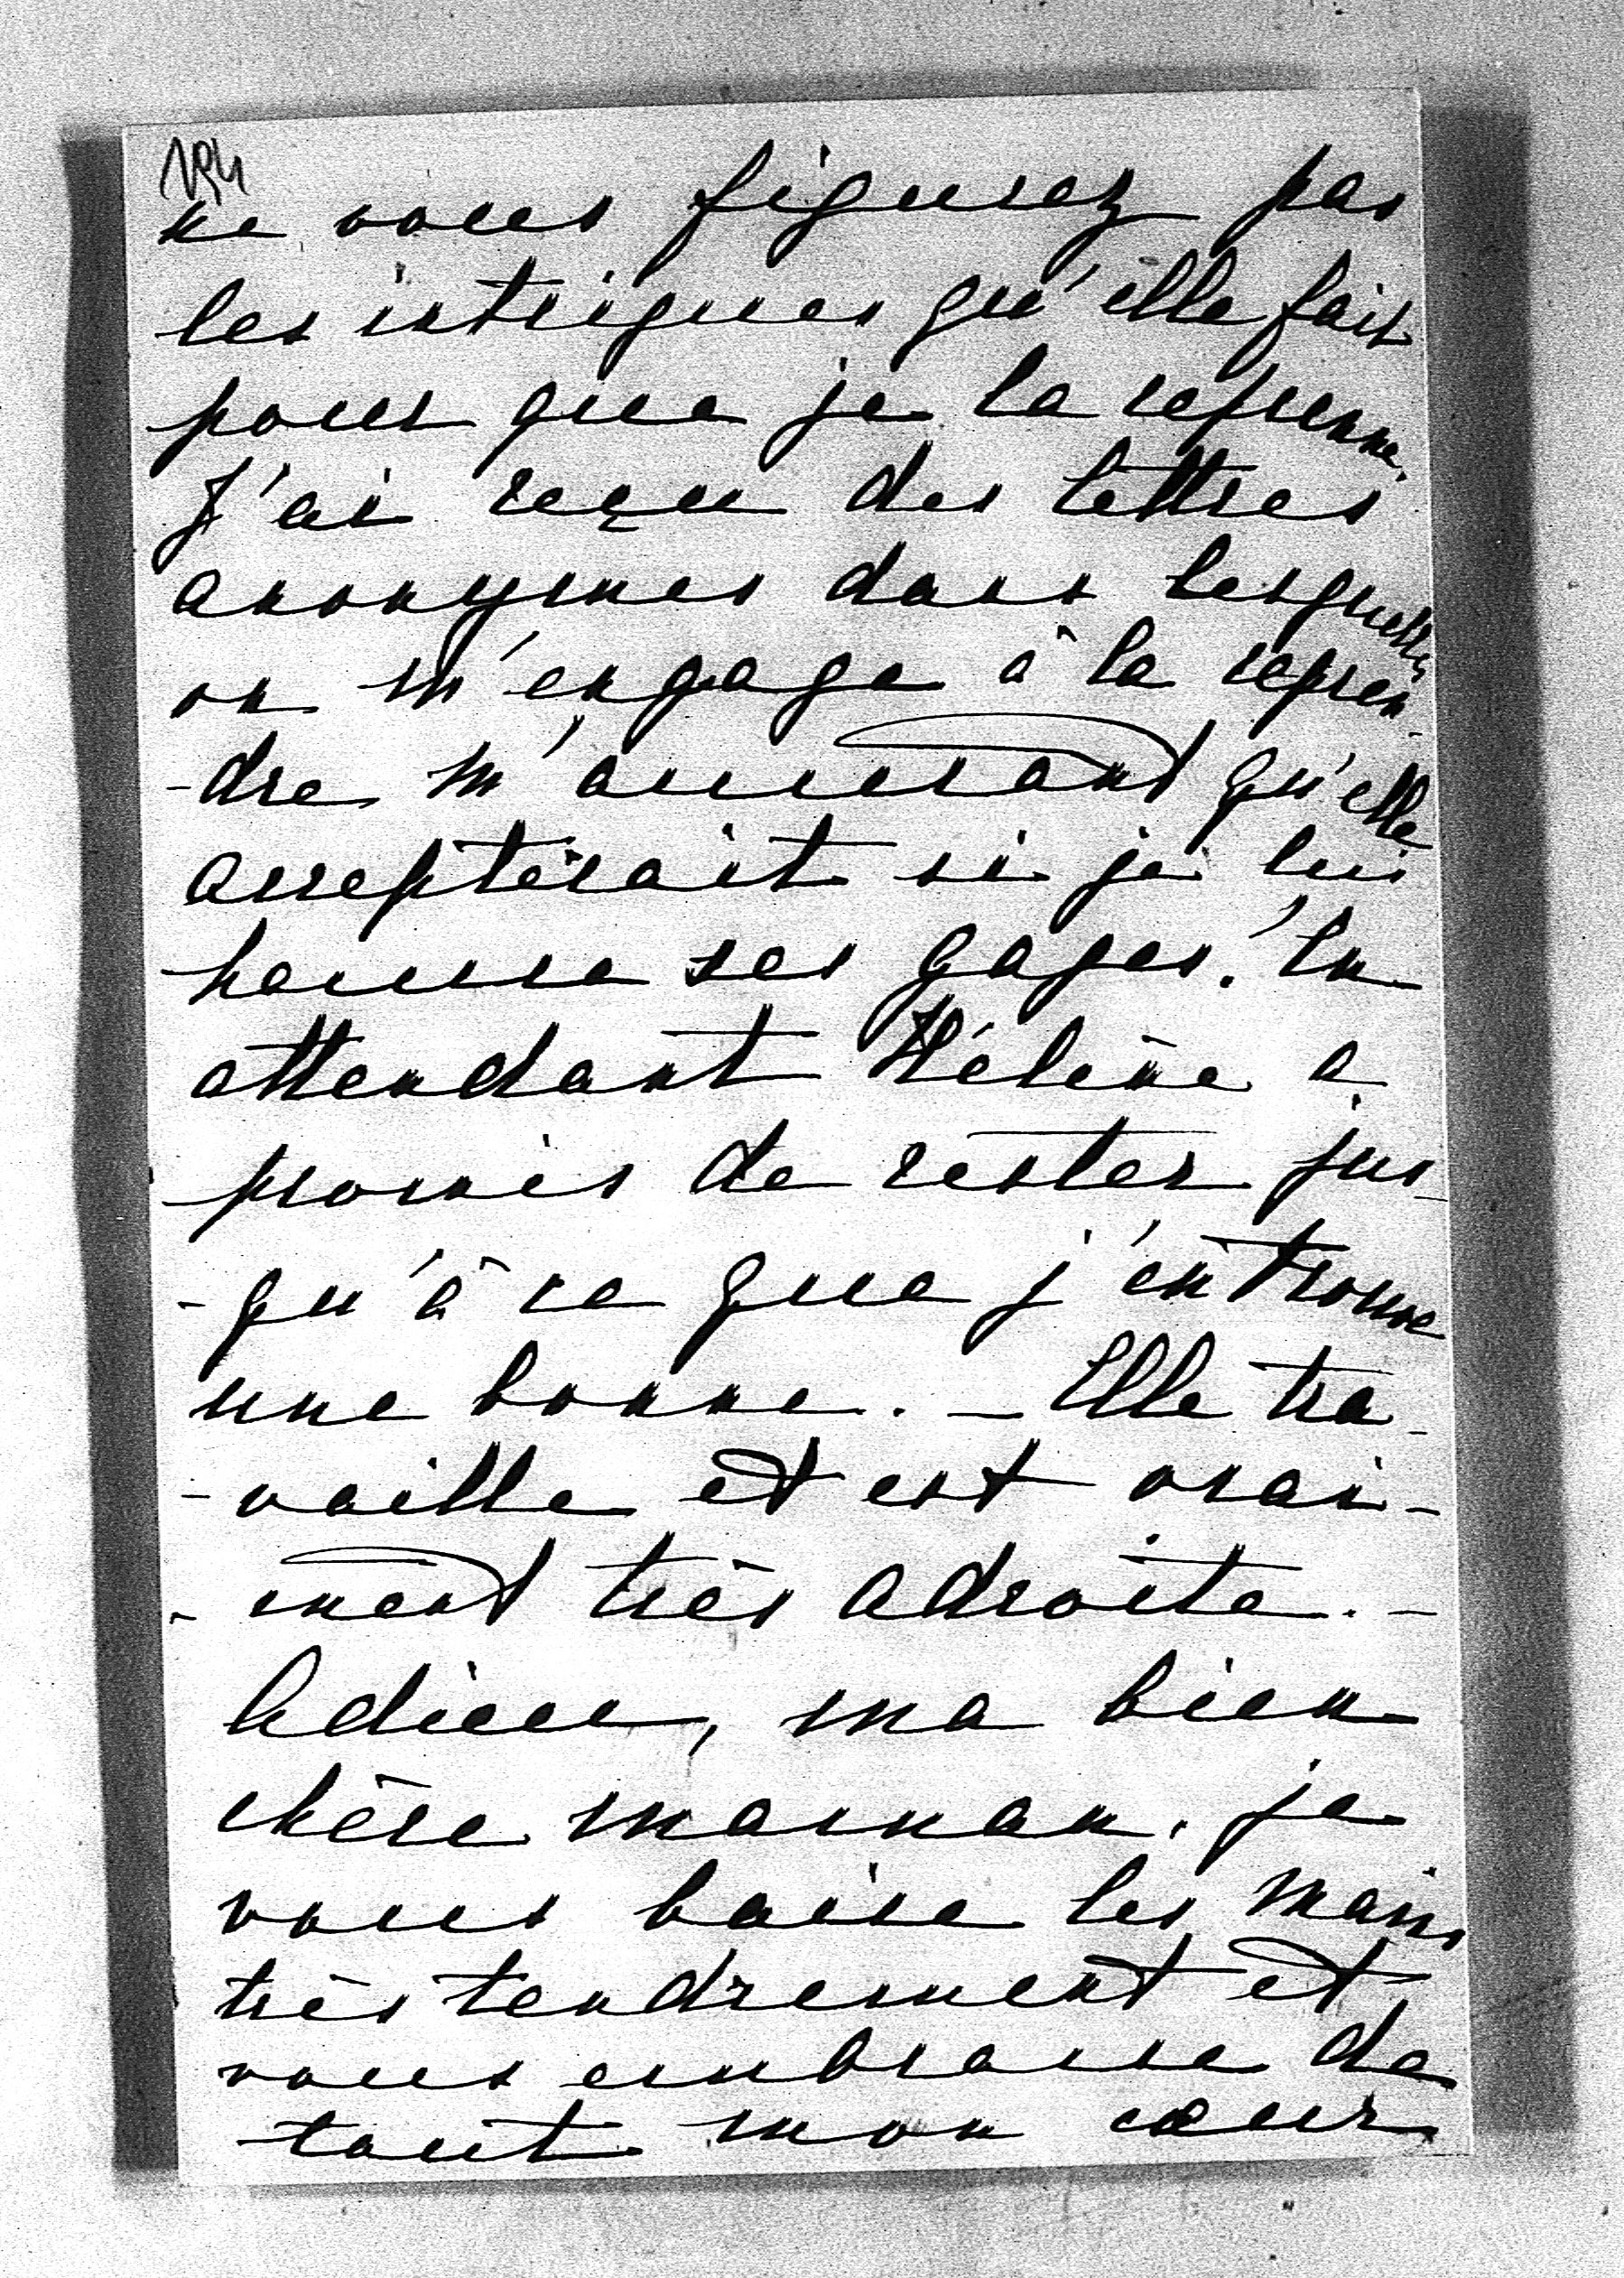 194
ne vous figurez pas
les intrigues qu'elle fait
pour que je la reprenne.
J'ai reçu des lettres
anonymes dans lesquelles
on m'engage à la repren-
-dre, m'assurant qu'elle
accepterait si je lui
hausse ses gages. En
attendant Hélène a
promis de rester jus-
-qu'à ce que j'en trouve
une bonne. — Elle tra-
-vaille et est vrai-
-ment très adroite. —
Adieu, ma bien
chère maman, je
vous baise les mains
très tendrement et
vous embrasse de
tout mon cœur